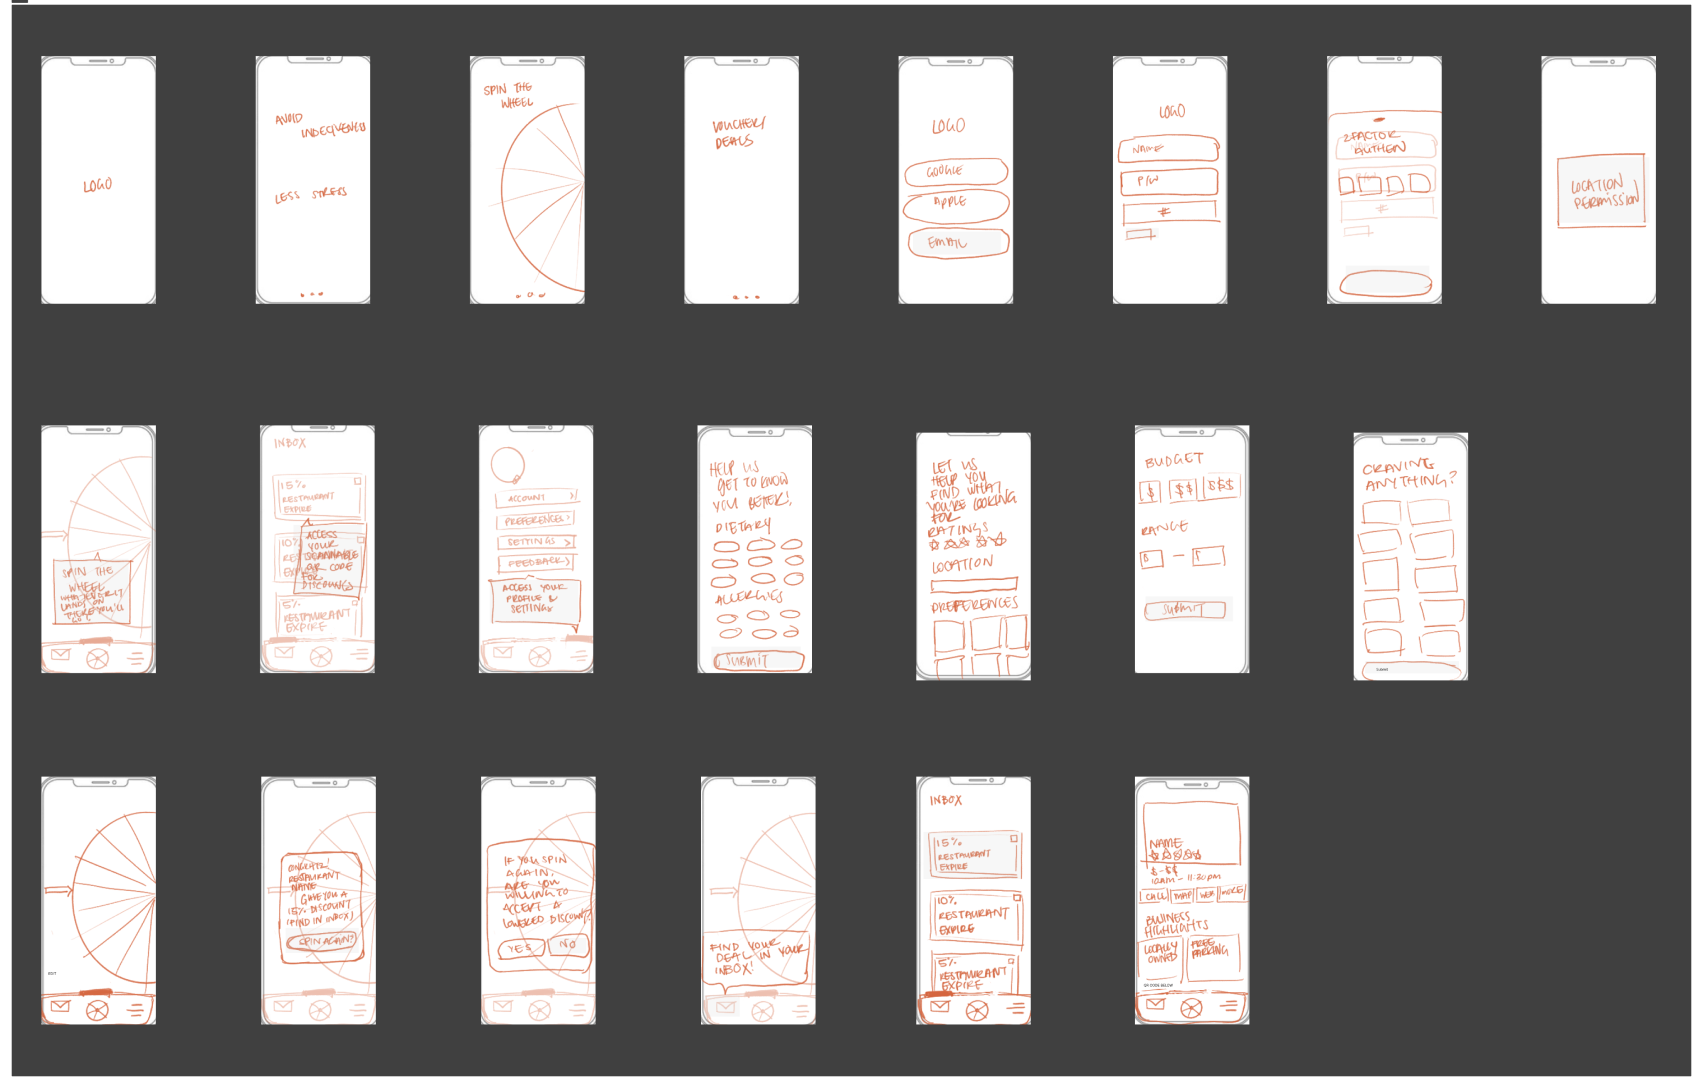 LOGO
AVOID
INDECISIVENESS
LESS STRESS
SPIN THE
WHEEL
VOUCHER/
DEALS
LOGO
GOOGLE
APPLE
EMAIL
LOGO
NAME
P/W
#
2 FACTOR
AUTHEN
#
LOCATION
PERMISSION
SPIN THE
WHEEL
LANDS ON
INBOX
15%
RESTAURANT
EXPIRE
10%
ACCESS
YOUR
SCANNABLE
QR CODE
FOR
DISCOUNTS
5%
RESTAURANT
EXPIRE
ACCOUNT >
PREFERENCES >
SETTINGS >
FEEDBACK >
ACCESS YOUR
PROFILE &
SETTINGS
HELP US
GET TO KNOW
YOU BETTER!
DIETARY
ALLERGIES
SUBMIT
LET US
HELP YOU
FIND WHAT
YOU'RE LOOKING
FOR
RATINGS
LOCATION
PREFERENCES
BUDGET
$ $$ $$$
RANGE
-
SUBMIT
CRAVING
ANYTHING?
CONGRATZ!
RESTAURANT
NAME
GAVE YOU A
15% DISCOUNT
(FIND IN INBOX)
SPIN AGAIN?
IF YOU SPIN
AGAIN,
ARE YOU
WILLING TO
ACCEPT A
LOWERED DISCOUNT?
YES NO
FIND YOUR
DEAL IN YOUR
INBOX!
INBOX
15%
RESTAURANT
EXPIRE
10%
RESTAURANT
EXPIRE
5%
RESTAURANT
EXPIRE
NAME
$-$$
10AM - 11:30PM
CALL MAP WEB MORE
BUSINESS
HIGHLIGHTS
LOCALLY
OWNED
FREE
PARKING
QR CODE BELOW